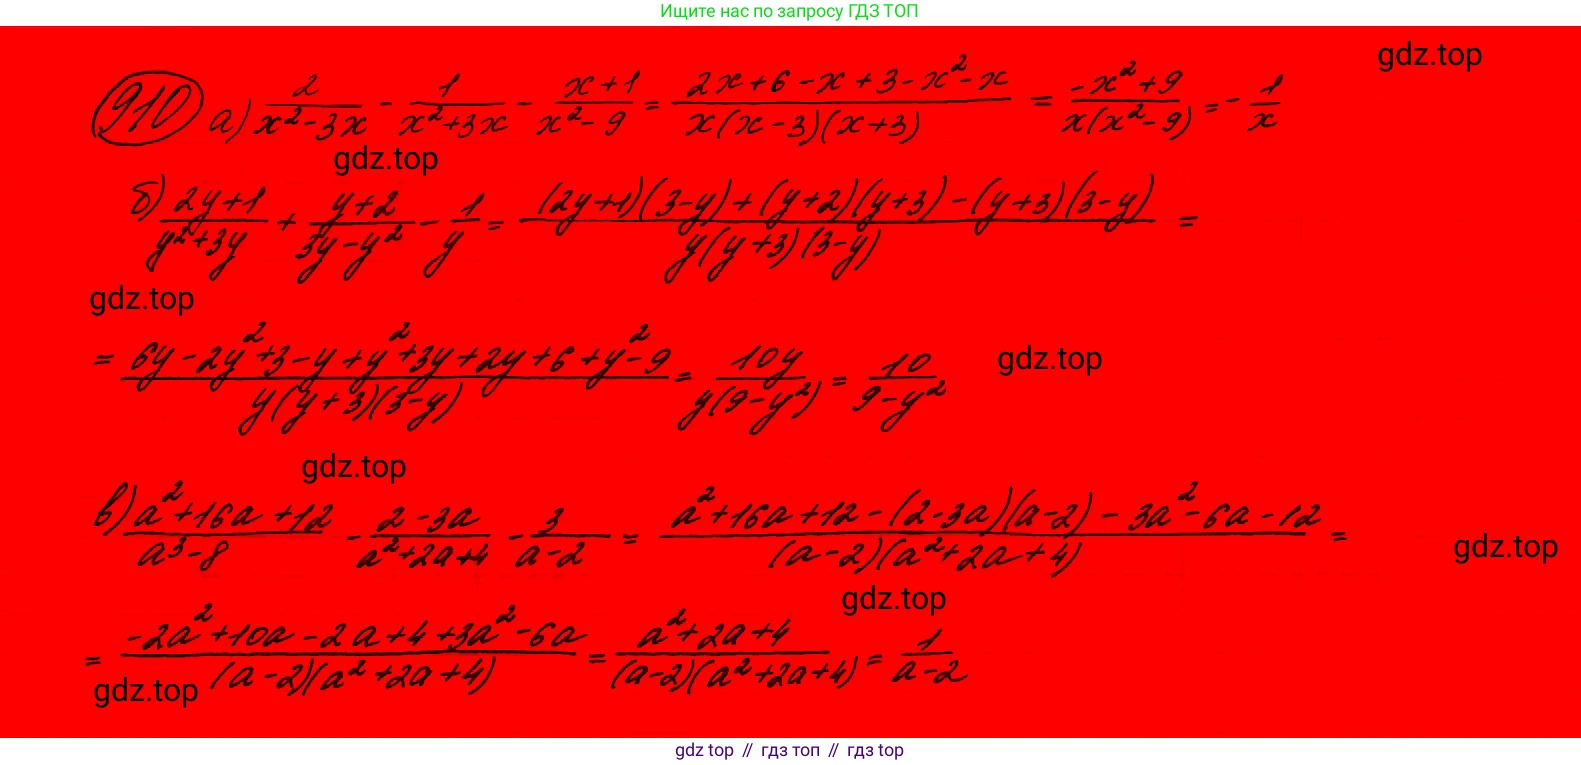 Ищите нас по запросу ГДЗ ТОП
gdz.top
910 а) 2/(x²-3x) - 1/(x²+3x) - (x+1)/(x²-9) = (2x+6-x+3-x²-x)/(x(x-3)(x+3)) = (-x²+9)/(x(x²-9)) = -1/x
gdz.top
б) (2y+1)/(y²+3y) + (y+2)/(3y-y²) - 1/y = ((2y+1)(3-y)+(y+2)(y+3)-(y+3)(3-y))/(y(y+3)(3-y)) =
gdz.top
= (6y-2y²+3-y+y²+3y+2y+6+y²-9)/(y(y+3)(3-y)) = 10y/(y(9-y²)) = 10/(9-y²)
gdz.top
gdz.top
в) (a²+16a+12)/(a³-8) - (2-3a)/(a²+2a+4) - 3/(a-2) = (a²+16a+12-(2-3a)(a-2)-3a²-6a-12)/((a-2)(a²+2a+4)) =
gdz.top
gdz.top
= (-2a²+10a-2a+4+3a²-6a)/((a-2)(a²+2a+4)) = (a²+2a+4)/((a-2)(a²+2a+4)) = 1/(a-2)
gdz.top
gdz top // гдз топ // гдз top